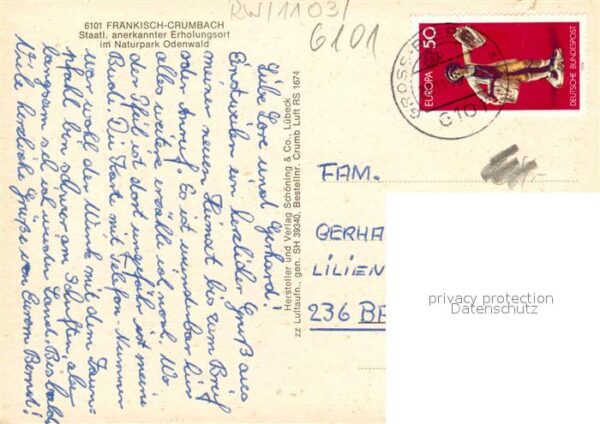 6101 FRÄNKISCH-CRUMBACH
Staatl. anerkannter Erholungsort
im Naturpark Odenwald
RW/1103/
6101
Liebe Lore und Gerhard!
Einstweilen ein herzlicher Gruß aus
meiner neuen Heimat bis zum Brief
oder Anruf. Es ist wunderbar hier
alles weitere erzähle ich noch. Wo
der Pfeil ist dort ungefähr ist meine
Die Karte mit Telefon-Nummer
war wohl der Wink mit dem Zaun-
pfahl bin schwer am Schuften, aber
langsam seh ich wieder Land. Bis bald
Viele herzliche Grüße von Eurem Bernd!
Hersteller und Verlag Schöning & Co., Lübeck
zz Luftaufn., gen. SH 39340, Bestellnr. Crumb Luft RS 1674
GROSS-BIEBERAU
6101
EUROPA 50
DEUTSCHE BUNDESPOST
FAM.
GERHA
LILIEN
236 B
privacy protection
Datenschutz